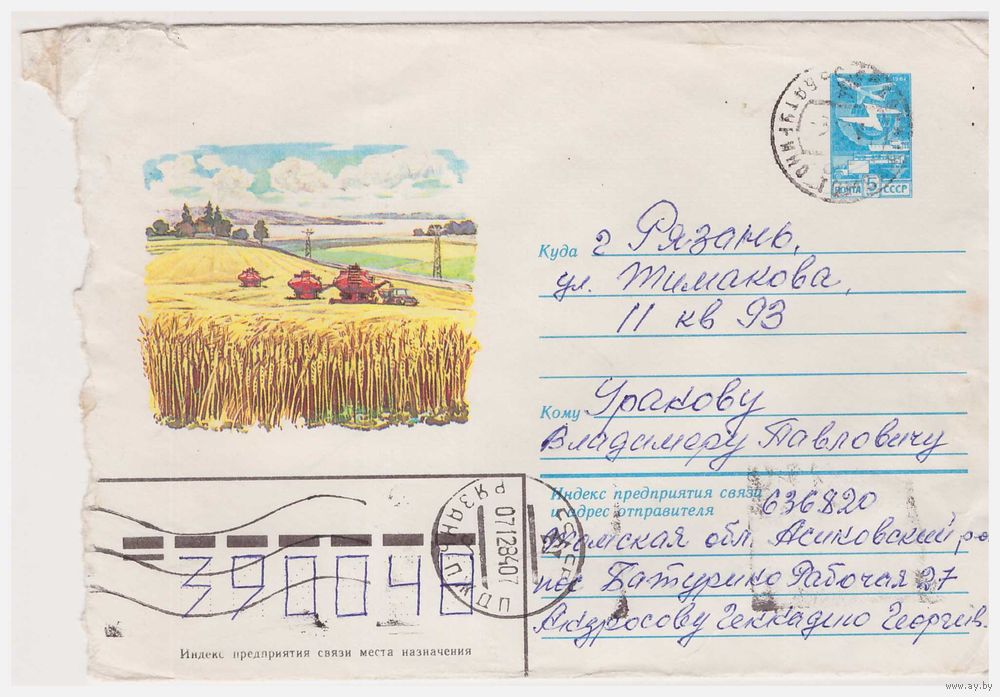 1982
ПОЧТА 5 к СССР
БАТУРИНО
Куда г Рязань,
ул. Тимакова,
11 кв 93
Кому Уракову
Владимеру Павловичу
Индекс предприятия связи
и адрес отправителя 636820
Томская обл Асиновский ро
пос Батурино Рабочая 27
Андросову Геннадию Георгие.
РЯЗАНЬ
07128407
390048
Индекс предприятия связи места назначения
www.ay.by